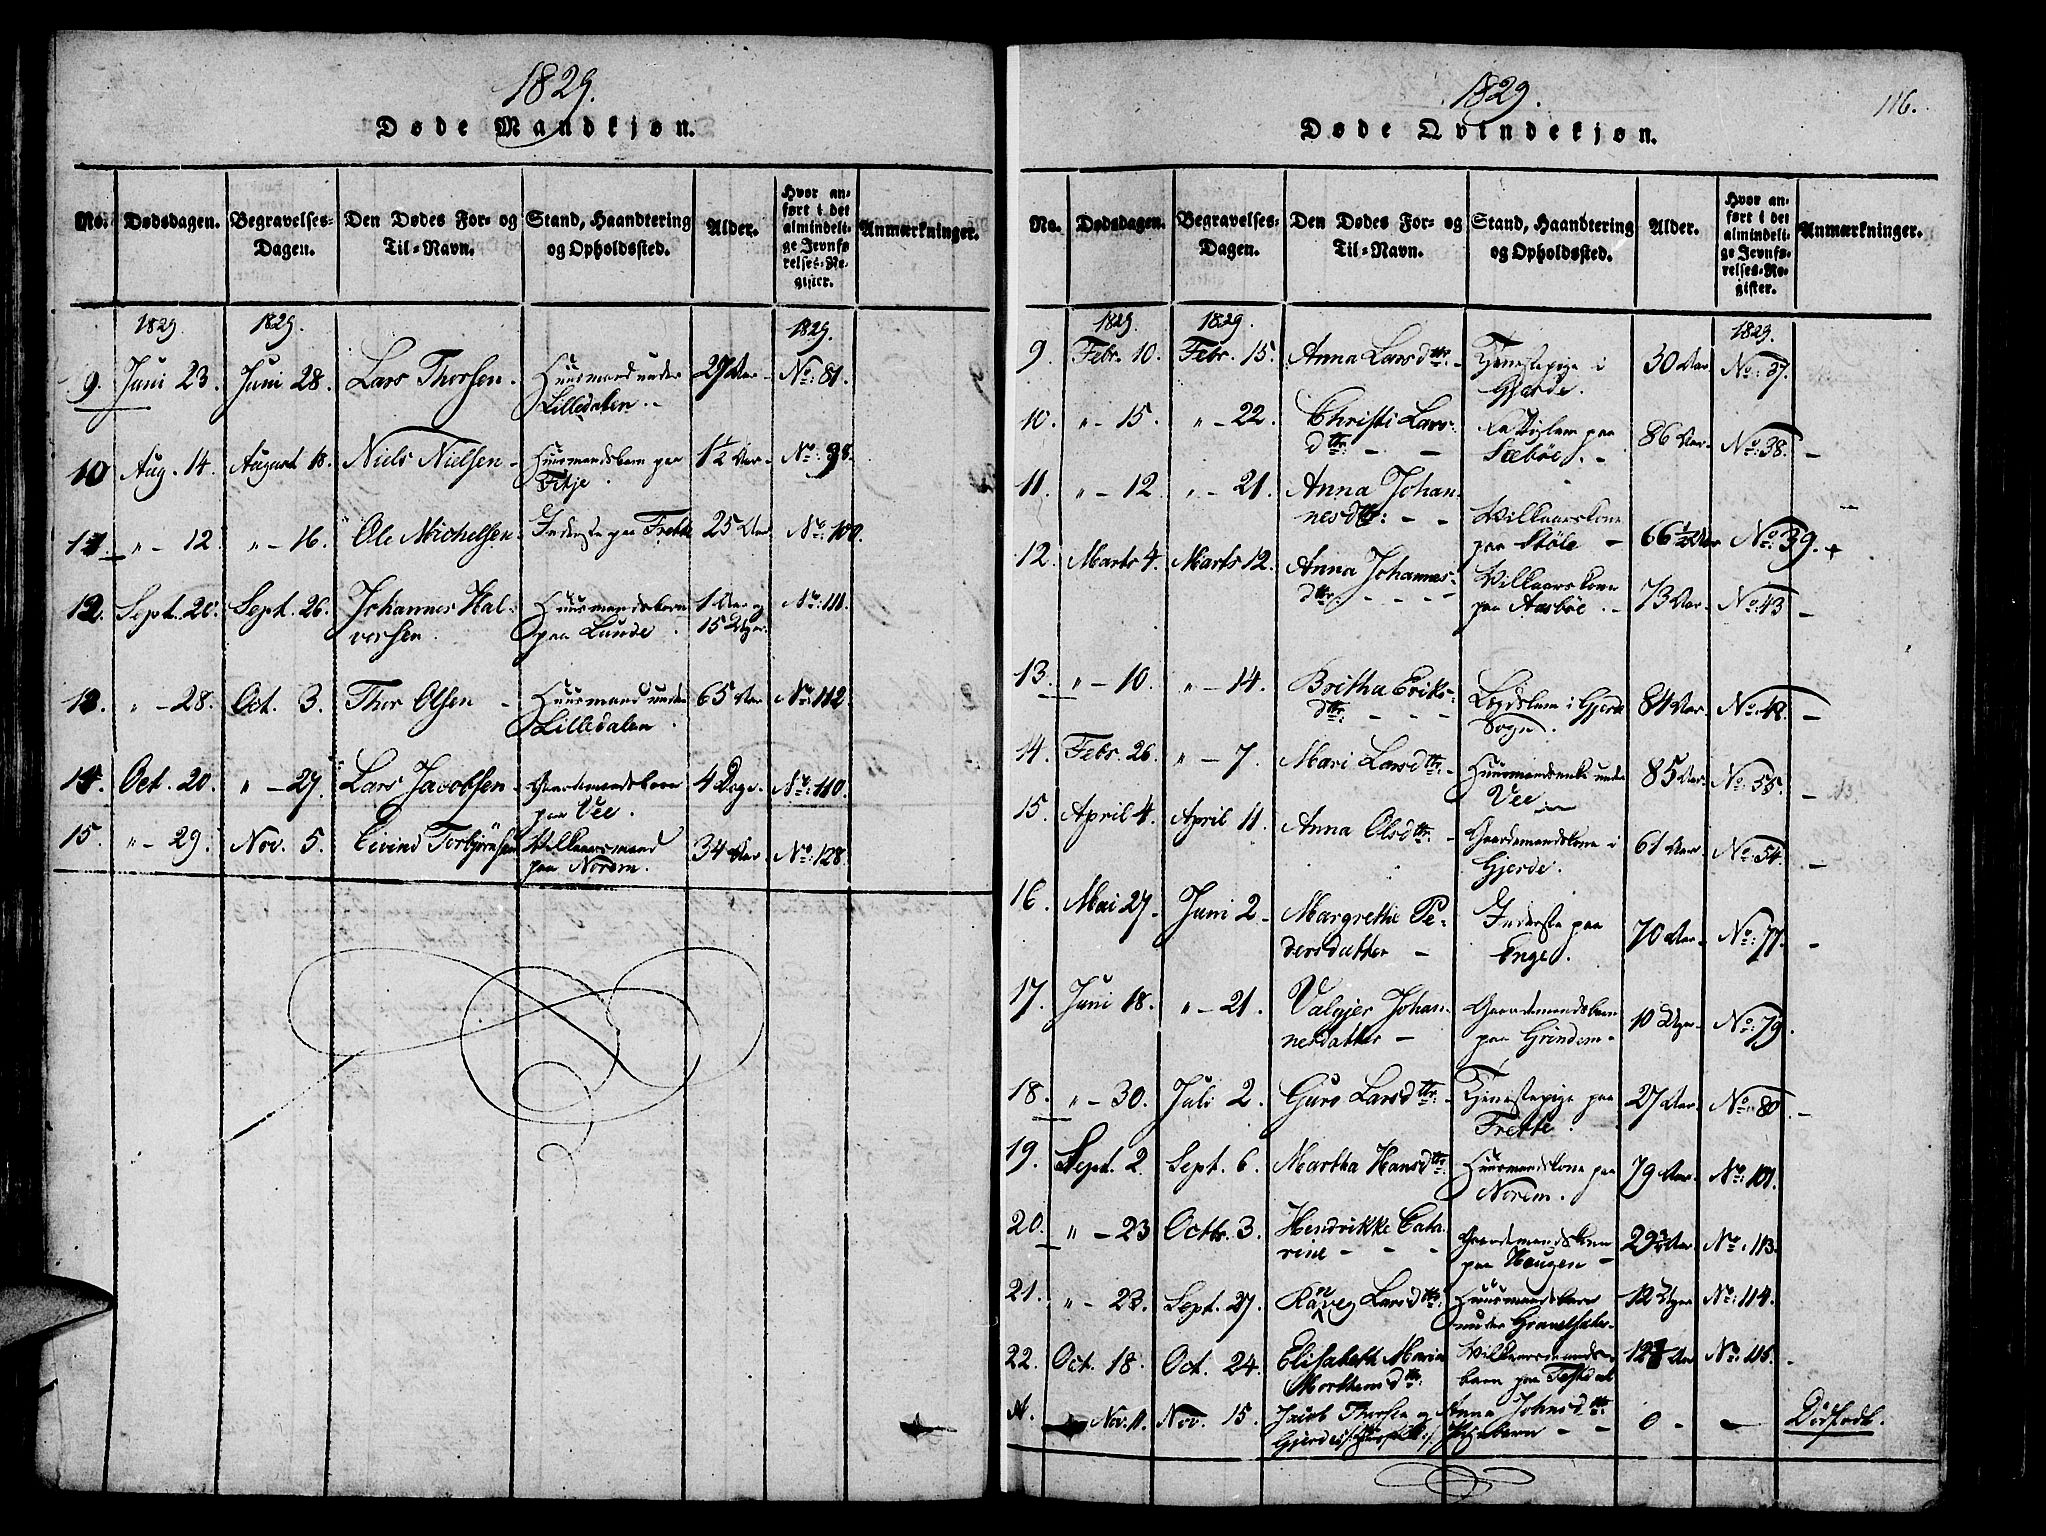 1829.
Døde Mandkjøn.
No. Dødsdagen. Begravelses-Dagen. Den Dødes For- og Til-Navn. Stand, Haandtering og Opholdssted. Alder. Hvor anført i det almindelige Jevnførelses-Register. Anmærkninger.
1829. 1829. 1829.
9. Juni 23. Juni 28. Lars Thorsen. Huusmand under 27 Aar No: 81.
Lilledalen.
10 Aug. 14. August 18. Niels Nielsen Huusmandsbarn paa 1½ Aar No: 98.
Fitje.
11. " 12. " 16. Ole Michelsen Inderste paa Frette 25 Aar No: 100.
12. Sept. 20. Sept. 26. Johannes Hal- Huusmandsbarn 1 Aar og No: 111.
vorsen. paa Lunde. 15 Uger.
13. " 28. Oct. 3. Thor Olsen Huusmand under 65 Aar No: 112.
Lilledalen.
14. Oct. 20. " 27. Lars Jacobsen Gaardmandsbarn 4 Dage No: 110.
paa Vee.
15. " 29. Nov. 5. Eivind Torbjørnsen Vilkaarsmand 34 Aar No: 128.
paa Norem.
1829. 116.
Døde Qvindekjøn.
No. Dødsdagen. Begravelses-Dagen. Den Dødes For- og Til-Navn. Stand, Haandtering og Opholdssted. Alder. Hvor anført i det almindelige Jevnførelses-Register. Anmærkninger.
1829. 1829. 1829.
9. Febr. 10. Febr. 15. Anna Larsdttr: Tjenestepige i 30 Aar No: 37.
Gjerde.
10. " 15. " 22. Christi Lars- paa 86 Aar No: 38.
dttr: Sæbøe.
11. " 12. " 21. Anna Johan-
nesdttr: Vilkaarskone 66½ Aar No: 39. +
paa Støle
12. Marts 4. Marts 12. Anna Johannes- Vilkaarskone 73 Aar No: 43
dttr: paa Aarbøe.
13. " 10. " 14. Britha Eriks- Lægdslem i Gjerde 84 Aar No: 48.
dttr: Sogn.
14. Febr. 26. " 7. Mari Larsdttr: Huusmandsenke under 85 Aar No: 55.
Vee
15. April 4. April 11. Anna Olsdttr: Gaardmandskone i 61 Aar No: 54.
Gjerde.
16. Mai 27. Juni 2. Margrethe Pe- Inderste paa 70 Aar No: 77.
dersdatter Enge.
17. Juni 18. " 21. Valgjer Johan- Gaardmandsbarn 10 Uger No: 79.
nesdatter paa Grindem
18. " 30. Juli 2. Guro Larsdttr: Tjenestepige paa 27 Aar No: 80.
Frette.
19. Sept. 2. Sept. 6. Martha Hansdttr: Huusmandskone paa 79 Aar No: 101.
Norem.
20. " 23 Octbr. 3. Hendrikke Catha- Gaardmandskone 29¾ Aar No: 113.
rine paa Haugen
21. " 23. Sept. 27. Ranveg Larsdttr: Huusmandsbarn 12 Uger No: 114.
under
22. Oct. 18. Oct. 24. Elisabeth Maria Vilkaarsmands- Aar No: 115.
Morthensdttr: barn paa
A. Nov. 11. Nov. 15. Jacob Thorsen og Anna Johnsdttr: 0 Dødfødt.